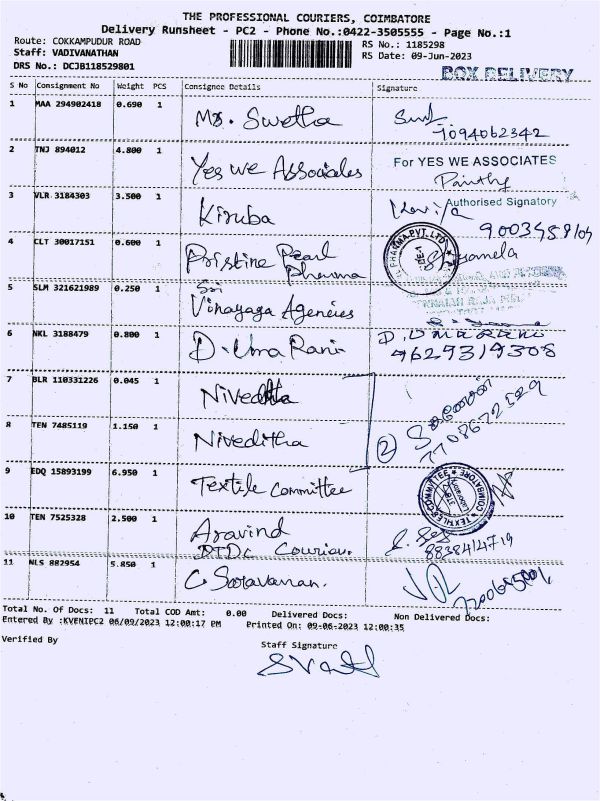 THE PROFESSIONAL COURIERS, COIMBATORE
Delivery Runsheet - PC2 - Phone No.:0422-3505555 - Page No.:1
Route: COKKAMPUDUR ROAD
RS No.: 1185298
Staff: VADIVANATHAN
RS Date: 09-Jun-2023
DRS No.: DCJB118529801
BOX DELIVERY
S No Consignment No Weight PCS Consignee Details Signature
1 MAA 294902418 0.690 1 Ms. Swetha
7094062342
2 TNJ 894012 4.800 1 Yes we Associates
For YES WE ASSOCIATES
Authorised Signatory
3 VLR 3184303 3.500 1 Kiruba
4 CLT 30017151 0.600 1 Pristine Pearl
Pharma
PHARMA PVT. LTD
5 SLM 321621989 0.250 1 Sri
Vinayaga Agencies
6 NKL 3188479 0.800 1 D. Uma Rani
D. UMA RANI
9629319308
7 BLR 110331226 0.045 1 Niveditha
8 TEN 7485119 1.150 1 Niveditha
2
7708672529
9 EDQ 15893199 6.950 1 Textile Committee
TEXTILES COMMITTEE
COIMBATORE
10 TEN 7525328 2.500 1 Aravind
DTDC Courier.
8838414719
11 NLS 882954 5.850 1 C Saravanan.
Total No. Of Docs: 11 Total COD Amt: 0.00 Delivered Docs: Non Delivered Docs:
Entered By :KVENIPC2 06/09/2023 12:00:17 PM Printed On: 09-06-2023 12:00:35
Verified By
Staff Signature